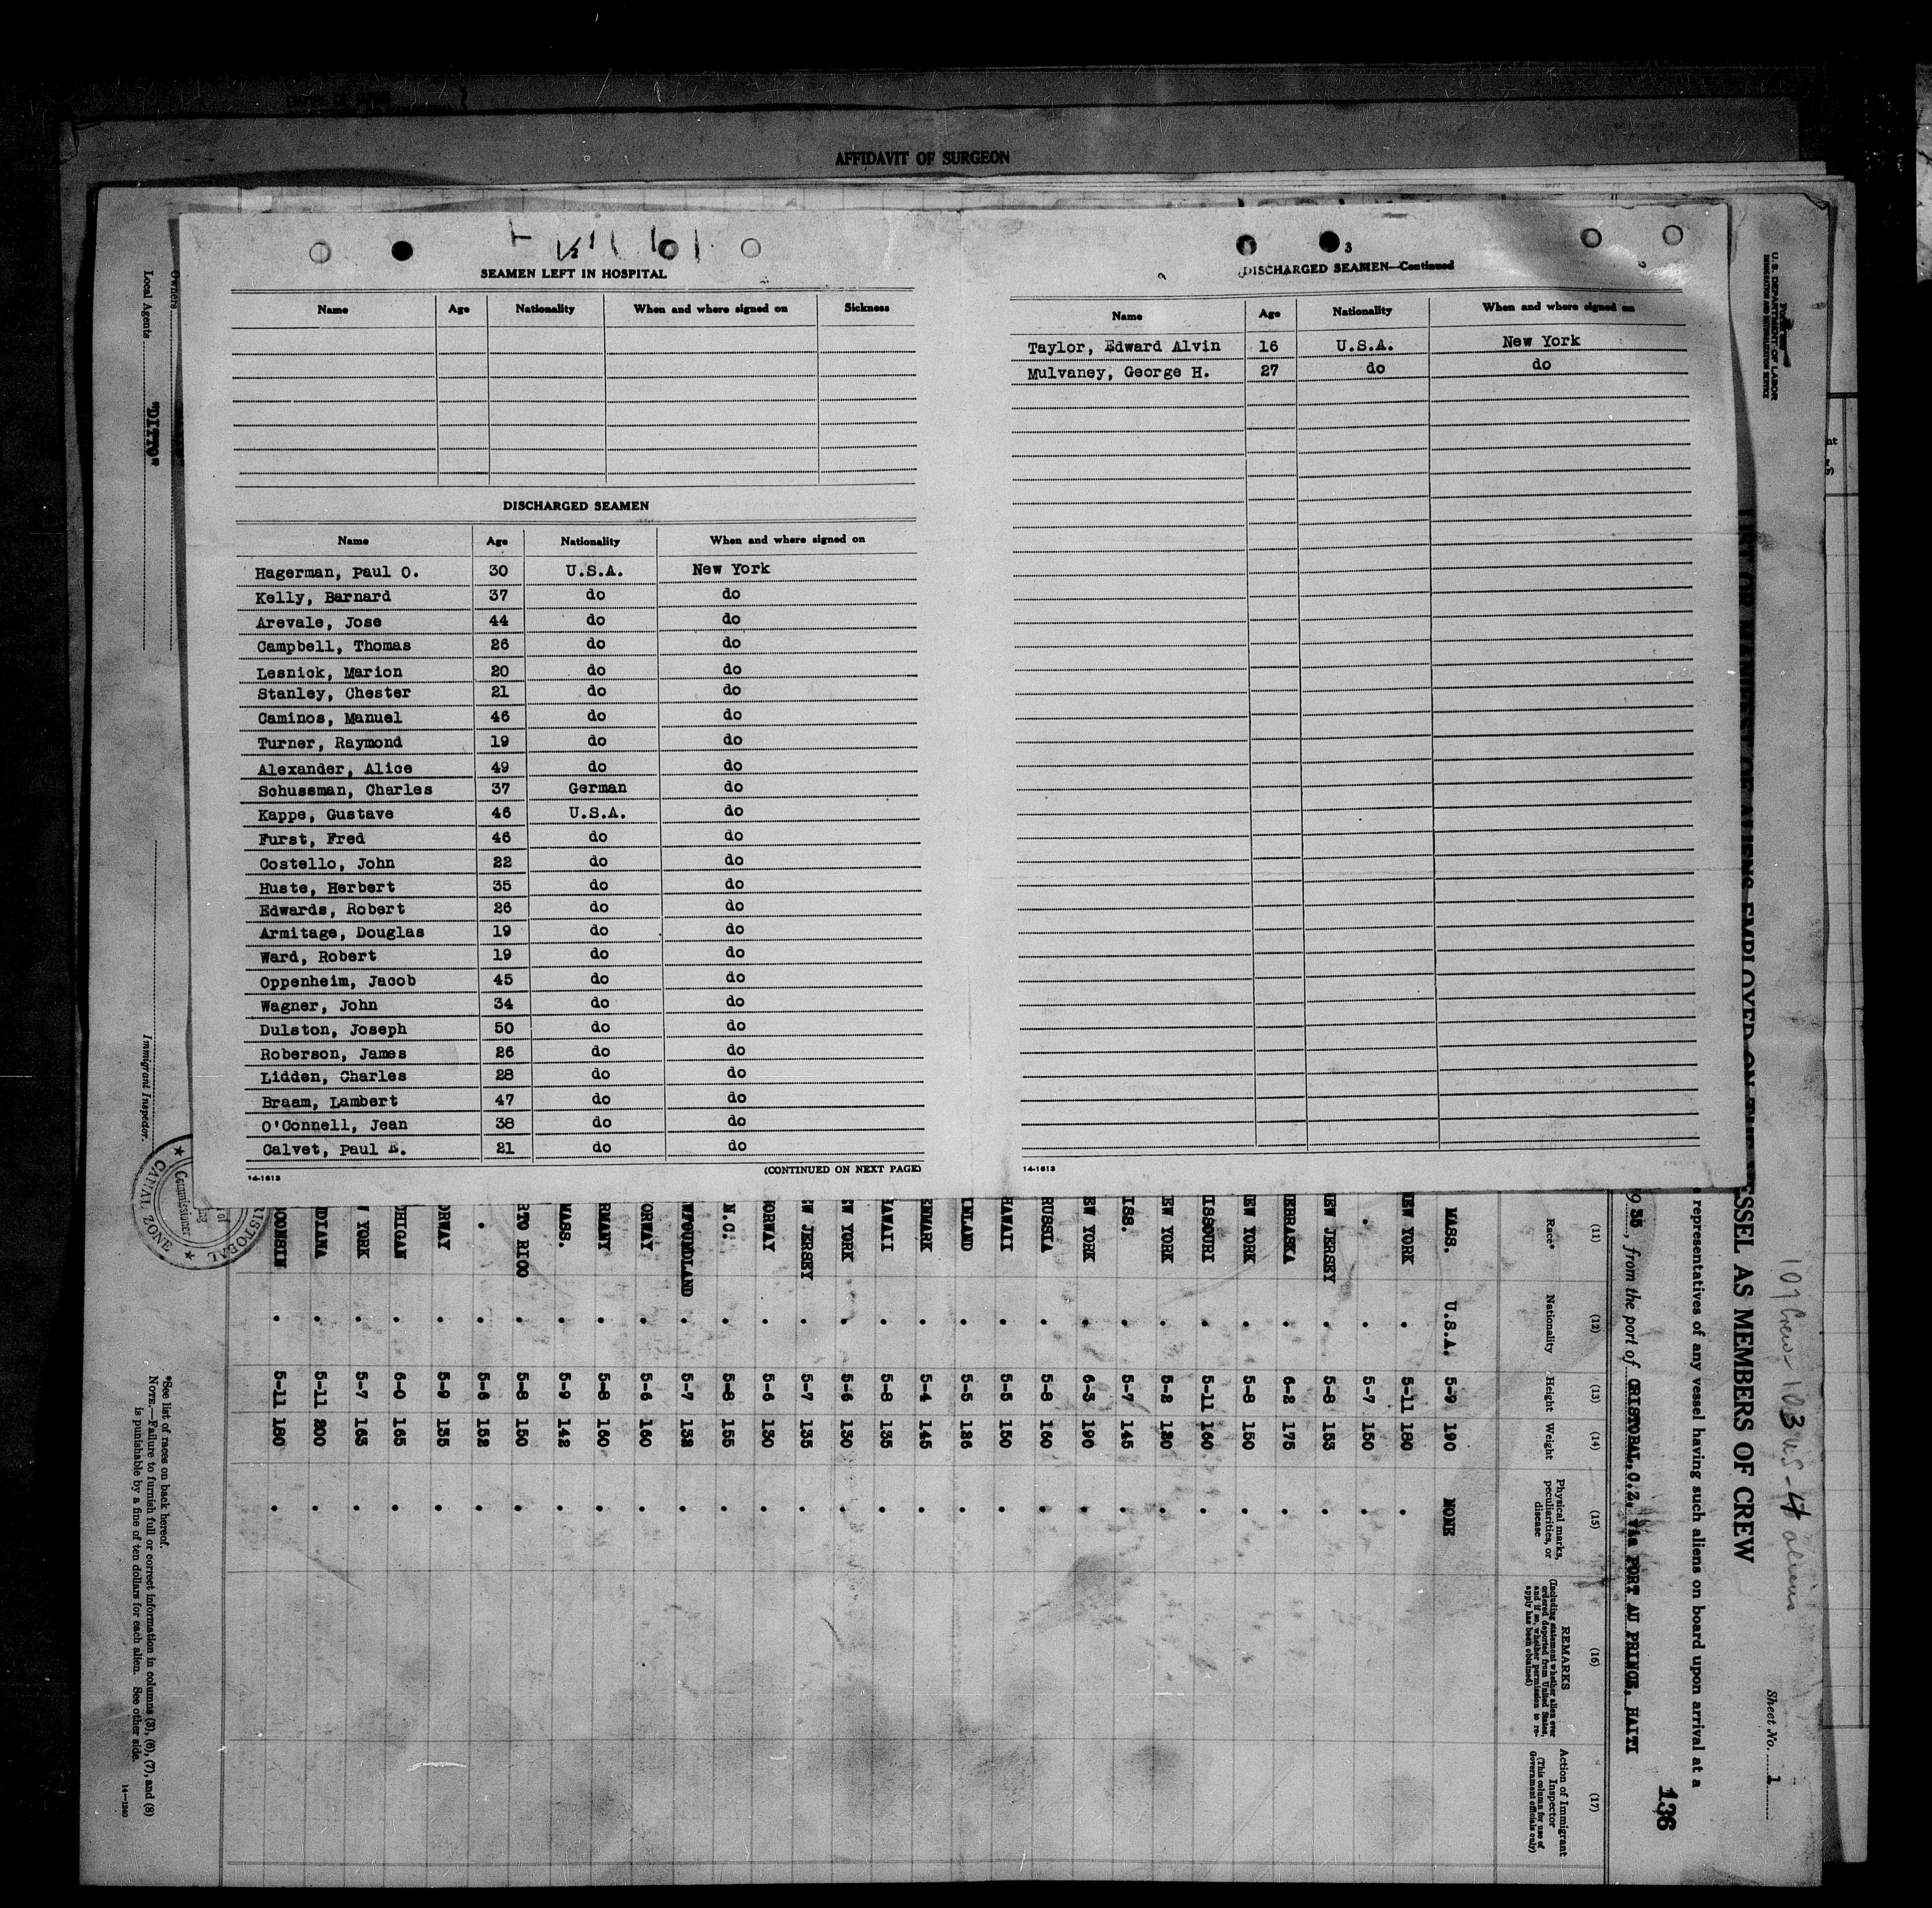 AFFIDAVIT OF SURGEON
SEAMEN LEFT IN HOSPITAL
Name Age Nationality When and where signed on Sickness
DISCHARGED SEAMEN
Name Age Nationality When and where signed on
Hagerman, Paul O. 30 U.S.A. New York
Kelly, Barnard 37 do do
Arevale, Jose 44 do do
Campbell, Thomas 26 do do
Lesnick, Marion 20 do do
Stanley, Chester 21 do do
Caminos, Manuel 46 do do
Turner, Raymond 19 do do
Alexander, Alice 49 do do
Schussman, Charles 37 German do
Kappe, Gustave 46 U.S.A. do
Furst, Fred 46 do do
Costello, John 22 do do
Huste, Herbert 35 do do
Edwards, Robert 26 do do
Armitage, Douglas 19 do do
Ward, Robert 19 do do
Oppenheim, Jacob 45 do do
Wagner, John 34 do do
Dulston, Joseph 50 do do
Roberson, James 26 do do
Lidden, Charles 28 do do
Braam, Lambert 47 do do
O'Connell, Jean 38 do do
Calvet, Paul E. 21 do do
14-1613 (CONTINUED ON NEXT PAGE)
3
DISCHARGED SEAMEN—Continued
Name Age Nationality When and where signed on
Taylor, Edward Alvin 16 U.S.A. New York
Mulvaney, George H. 27 do do
14-1613
U.S. DEPARTMENT OF LABOR
IMMIGRATION AND NATURALIZATION SERVICE
Sheet No. 1
ALIENS EMPLOYED ON THE VESSEL AS MEMBERS OF CREW
representatives of any vessel having such aliens on board upon arrival at a
136
35, from the port of CRISTOBAL, C.Z. via PORT AU PRINCE, HAITI
(11) (12) (13) (14) (15) (16) (17)
Race* Nationality Height Weight Physical marks, peculiarities, or disease REMARKS (Including statement whether alien ever ordered deported from United States, and if so, whether permission to reapply has been obtained) Action of Immigrant Inspector (This column for use of Government officials only)
MASS. U.S.A. 5-9 190 NONE
EW YORK " 5-11 180 "
" " 5-7 150 "
EW JERSEY " 5-8 153 "
EBRASKA " 6-2 175 "
EW YORK " 5-8 150 "
ISSOURI " 5-11 160 "
EW YORK " 5-2 120 "
ISS. " 5-7 145 "
EW YORK " 6-3 190 "
RUSSIA " 5-8 160 "
HAWAII " 5-5 150 "
INLAND " 5-5 126 "
ENMARK " 5-4 145 "
HAWAII " 5-8 135 "
EW YORK " 5-6 130 "
EW JERSEY " 5-7 135 "
ORWAY " 5-6 130 "
N.C. " 5-8 155 "
WFOUNDLAND " 5-7 132 "
ORWAY " 5-6 160 "
RMANY " 5-8 160 "
MASS. " 5-9 142 "
RTO RICO " 5-8 150 "
" " 5-6 152 "
ORWAY " 5-9 135 "
CHIGAN " 6-0 165 "
YORK " 5-7 163 "
DIANA " 5-11 200 "
CONSIN " 5-11 180 "
*See list of races on back hereof.
NOTE.—Failure to furnish full or correct information in columns (3), (6), (7), and (8)
is punishable by a fine of ten dollars for each alien. See other side.
14-1240
Owners
Local Agents "DITTO"
Immigrant Inspector.
Commissioner
CANAL ZONE